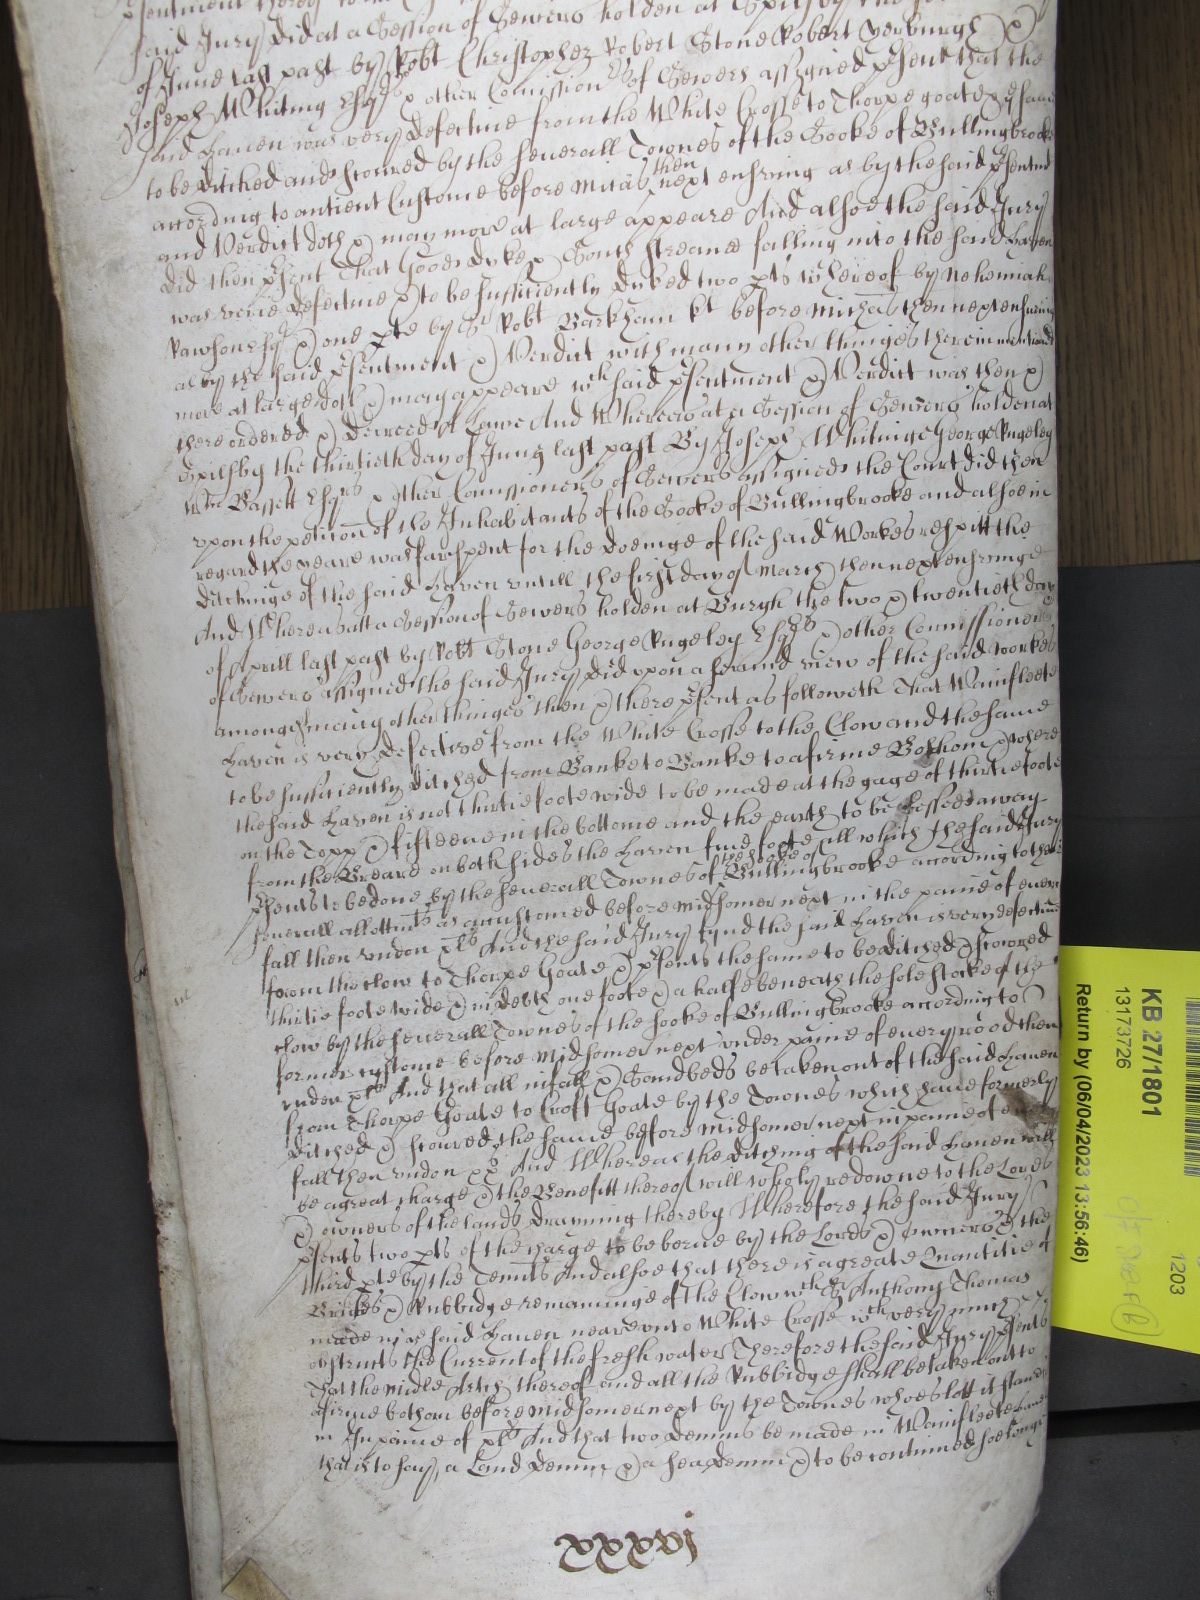 said Jury did at a Session of Sewers holden at Spilsby the
of June last past by Robt Christopher Robert Stone Robert Yerburgh &
Joseph Whiting Esqrs & other Comissionrs of Sewers assigned psent that the
said Haven was very defective from the White Crosse to Thorpe goate & the same
to be ditched and scoured by the severall Townes of the Sooke of Bullingbrooke
according to antient Custome before Micäs then next ensuing as by the said psentmt
and Verdict doth & may more at large appeare And alsoe the said Jury
did then psent That Goodn dyke & South streame falling into the said Haven
was verie defective & to be sufficiently dyked two pts whereof by Nehemiah
Rawson esqr & one pte by Sr Robt Barkham kt before Michas then next ensuing
as by the said psentment & Verdict with many other thinges therein mentioned
more at large doth & may appeare wch said psentment & Verdict was then &
there ordered & decreed A Lawe And Whereas at a Session of Sewers holden at
Spilsby the thirtieth day of June last past By Joseph Whitinge George Rugeley
Wm Bassett Esqrs & other Comissioners of Sewers assigned the Court did then
upon the peticon of the Inhabitants of the Sooke of Bullingbrooke and alsoe in
regard the yeare was farr spent for the doeinge of the said Workes respitt the
ditchinge of the said Haven untill the first day of March then next ensuinge
And Whereas att a Session of Sewers holden at Burgh the two & twentieth day
of Aprill last past by Robt Stone George Rugeley Esqrs & other Comissioners
of Sewers assigned the said Jury did upon a second view of the said workes
amongst many other thinges then & there psent as followeth That Wainfleete
Haven is very defective from the White Crosse to the Clow and the same
to be sufficiently ditched from Banke to Banke to a firme Bothom & where
the said Haven is not thirtie foote wide to be made at the gage of thirtie foote
on the Topp & fifteene in the bottome and the earth to be cessed away
from the Breard on both sides the Haven five foote all which the said Jury
psents to be done by the severall Townes of the sooke of Bullingbrooke according to their
severall allottmts as accustomed before Midsomer next in the paine of every
fall then undon xls And the said Jury fynd the said Haven is very defective
from the clow to Thorpe Goate & psents the same to be ditched & scowred
thirtie foote wide & in debth one foote & a halfe beneath the sole stocke of the
clow by the severall Townes of the sooke of Bullingbrooke according to
former custome before Midsomer next under paine of every rood then
undon xls And that all infall & Sandbeds be taken out of the said Haven
from Thorpe Goate to Croft Goate by the Townes which have formerly
ditched & scoured the same before Midsomer next in paine of every
fall then undon xxs And Whereas the ditching of the said Haven will
be a great charge & the Benefitt thereof will wholy redowne to the Lords
& owners of the lands drayning thereby Wherefore the said Jury
psents two pts of the charge to be borne by the Lords & Owners & the
third pte by the Tennts And alsoe that there is a greate Quantitie of
Brickes & Rubbidge remaininge of the Clow wch Sr Anthony Thomas
made in ye said Haven neare unto White Crosse wch very much
obstructs the Current of the fresh water Therefore the said Jury psents
that the midle Arch thereof and all the Rubbidge shall be taken out to
a firme bothom before Midsomer next by the Townes whoes lott it stands
in In paine of xls And that two demms be made in Wainfleete haven
that is to say, a Land demm & a sea demm & to be continued soe longe
xxxvj
KB 27/1801
13173726
Return by (06/04/2023 13:56:46)
1203